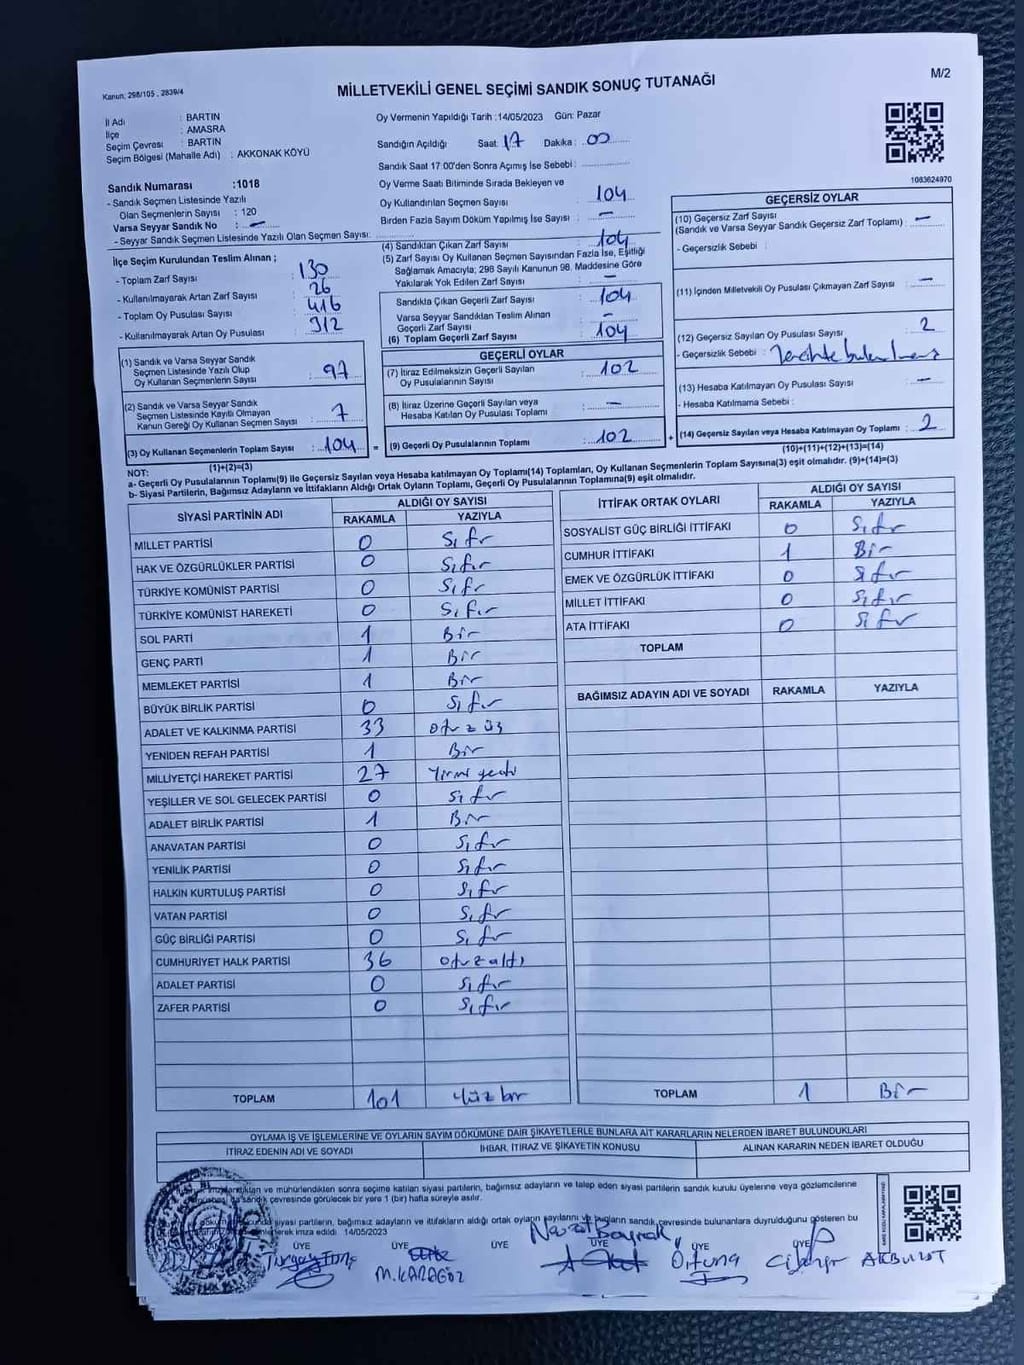 Kanun: 298/105 , 2839/4
MİLLETVEKİLİ GENEL SEÇİMİ SANDIK SONUÇ TUTANAĞI
M/2
İl Adı : BARTIN
İlçe : AMASRA
Seçim Çevresi : BARTIN
Seçim Bölgesi (Mahalle Adı) : AKKONAK KÖYÜ
Sandık Numarası :1018
- Sandık Seçmen Listesinde Yazılı
Olan Seçmenlerin Sayısı : 120
Varsa Seyyar Sandık No : -
- Seyyar Sandık Seçmen Listesinde Yazılı Olan Seçmen Sayısı:
Oy Vermenin Yapıldığı Tarih :14/05/2023 Gün: Pazar
Sandığın Açıldığı Saat: 17 Dakika : 00
Sandık Saat 17:00'den Sonra Açımış İse Sebebi :
Oy Verme Saati Bitiminde Sırada Bekleyen ve
Oy Kullandırılan Seçmen Sayısı 104
Birden Fazla Sayım Döküm Yapılmış İse Sayısı : -
1083624970
İlçe Seçim Kurulundan Teslim Alınan ;
- Toplam Zarf Sayısı : 130
- Kullanılmayarak Artan Zarf Sayısı : 26
- Toplam Oy Pusulası Sayısı : 416
- Kullanılmayarak Artan Oy Pusulası : 312
(1) Sandık ve Varsa Seyyar Sandık
Seçmen Listesinde Yazılı Olup
Oy Kullanan Seçmenlerin Sayısı : 97
(2) Sandık ve Varsa Seyyar Sandık
Seçmen Listesinde Kayıtlı Olmayan
Kanun Gereği Oy Kullanan Seçmen Sayısı : 7
(3) Oy Kullanan Seçmenlerin Toplam Sayısı : 104 =
(1)+(2)=(3)
(4) Sandıktan Çıkan Zarf Sayısı : 104
(5) Zarf Sayısı Oy Kullanan Seçmen Sayısından Fazla İse, Eşitliği
Sağlamak Amacıyla; 298 Sayılı Kanunun 98. Maddesine Göre
Yakılarak Yok Edilen Zarf Sayısı : -
Sandıkta Çıkan Geçerli Zarf Sayısı : 104
Varsa Seyyar Sandıktan Teslim Alınan
Geçerli Zarf Sayısı : -
(6) Toplam Geçerli Zarf Sayısı : 104
GEÇERLİ OYLAR
(7) İtiraz Edilmeksizin Geçerli Sayılan
Oy Pusulalarının Sayısı : 102
(8) İtiraz Üzerine Geçerli Sayılan veya
Hesaba Katılan Oy Pusulası Toplamı : -
(9) Geçerli Oy Pusulalarının Toplamı : 102 +
GEÇERSİZ OYLAR
(10) Geçersiz Zarf Sayısı
(Sandık ve Varsa Seyyar Sandık Geçersiz Zarf Toplamı) : -
- Geçersizlik Sebebi :
(11) İçinden Milletvekili Oy Pusulası Çıkmayan Zarf Sayısı : -
(12) Geçersiz Sayılan Oy Pusulası Sayısı : 2
- Geçersizlik Sebebi :
(13) Hesaba Katılmayan Oy Pusulası Sayısı : -
- Hesaba Katılmama Sebebi :
(14) Geçersiz Sayılan veya Hesaba Katılmayan Oy Toplamı : 2
(10)+(11)+(12)+(13)=(14)
NOT:
a- Geçerli Oy Pusulalarının Toplamı(9) ile Geçersiz Sayılan veya Hesaba katılmayan Oy Toplamı(14) Toplamları, Oy Kullanan Seçmenlerin Toplam Sayısına(3) eşit olmalıdır. (9)+(14)=(3)
b- Siyasi Partilerin, Bağımsız Adayların ve İttifakların Aldığı Ortak Oyların Toplamı, Geçerli Oy Pusulalarının Toplamına(9) eşit olmalıdır.
SİYASİ PARTİNİN ADI ALDIĞI OY SAYISI
RAKAMLA YAZIYLA
MİLLET PARTİSİ 0 Sıfır
HAK VE ÖZGÜRLÜKLER PARTİSİ 0 Sıfır
TÜRKİYE KOMÜNİST PARTİSİ 0 Sıfır
TÜRKİYE KOMÜNİST HAREKETİ 0 Sıfır
SOL PARTİ 1 Bir
GENÇ PARTİ 1 Bir
MEMLEKET PARTİSİ 1 Bir
BÜYÜK BİRLİK PARTİSİ 0 Sıfır
ADALET VE KALKINMA PARTİSİ 33 otuz üç
YENİDEN REFAH PARTİSİ 1 Bir
MİLLİYETÇİ HAREKET PARTİSİ 27 Yirmi yedi
YEŞİLLER VE SOL GELECEK PARTİSİ 0 Sıfır
ADALET BİRLİK PARTİSİ 1 Bir
ANAVATAN PARTİSİ 0 Sıfır
YENİLİK PARTİSİ 0 Sıfır
HALKIN KURTULUŞ PARTİSİ 0 Sıfır
VATAN PARTİSİ 0 Sıfır
GÜÇ BİRLİĞİ PARTİSİ 0 Sıfır
CUMHURİYET HALK PARTİSİ 36 otuzaltı
ADALET PARTİSİ 0 Sıfır
ZAFER PARTİSİ 0 Sıfır
TOPLAM 101 Yüz bir
İTTİFAK ORTAK OYLARI ALDIĞI OY SAYISI
RAKAMLA YAZIYLA
SOSYALİST GÜÇ BİRLİĞİ İTTİFAKI 0 Sıfır
CUMHUR İTTİFAKI 1 Bir
EMEK VE ÖZGÜRLÜK İTTİFAKI 0 Sıfır
MİLLET İTTİFAKI 0 Sıfır
ATA İTTİFAKI 0 Sıfır
TOPLAM
BAĞIMSIZ ADAYIN ADI VE SOYADI RAKAMLA YAZIYLA
TOPLAM 1 Bir
OYLAMA İŞ VE İŞLEMLERİNE VE OYLARIN SAYIM DÖKÜMÜNE DAİR ŞİKAYETLERLE BUNLARA AİT KARARLARIN NELERDEN İBARET BULUNDUKLARI
İTİRAZ EDENİN ADI VE SOYADI İHBAR, İTİRAZ VE ŞİKAYETİN KONUSU ALINAN KARARIN NEDEN İBARET OLDUĞU
ve mühürlendikten sonra seçime katılan siyasi partilerin, bağımsız adayların ve talep eden siyasi partilerin sandık kurulu üyelerine veya gözlemcilerine
sandık çevresinde görülecek bir yere 1 (bir) hafta süreyle asılır.
siyasi partilerin, bağımsız adayların ve ittifakların aldığı ortak oyların sayılarını ve bunların sandık çevresinde bulunanlara duyrulduğunu gösteren bu
imza edildi. 14/05/2023
ÜYE ÜYE ÜYE ÜYE ÜYE ÜYE
M.KARAGÖZ
Nevzat Bayrak
AKBULUT